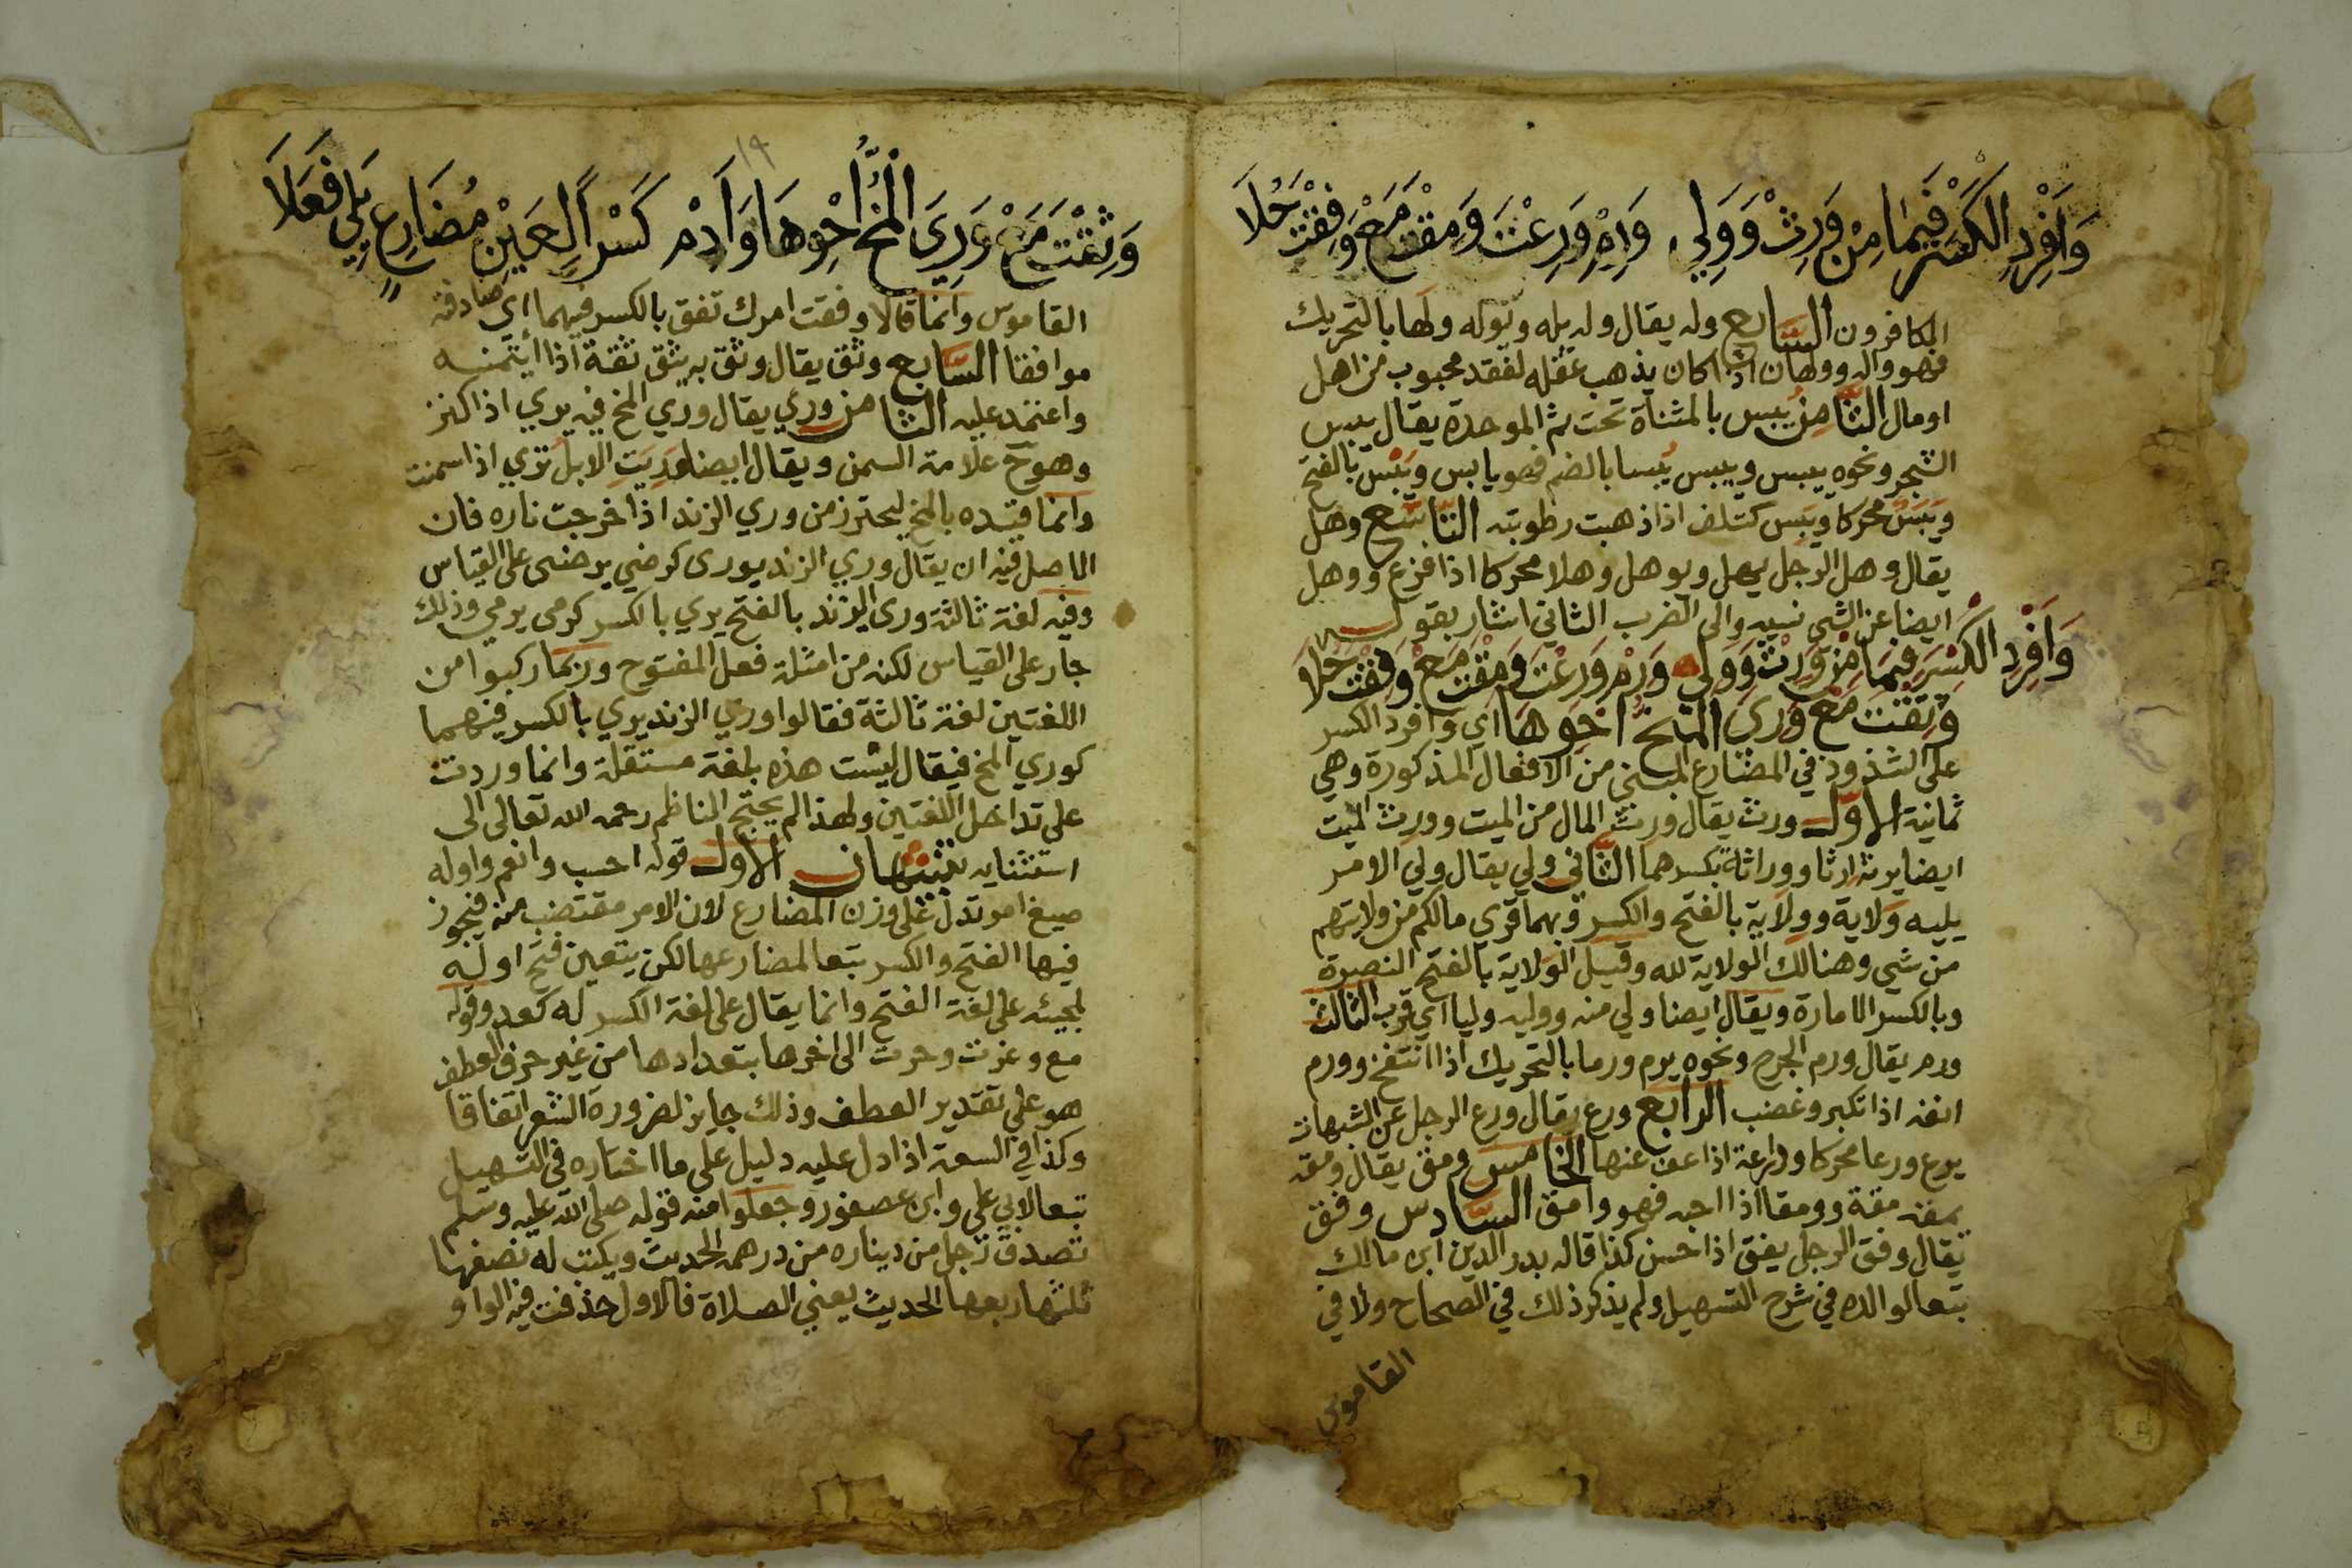 وَأَفْرِدِ الكَسْرَ فِيمَا مِنْ وَرِثْ وَوَلِي وَرِمْ وَرِعْتَ وَمِقْتَ مَعْ وَفِقْتَ حُلَا
الكافرون السابع وله يقال وله يله ويوله ولها بالتحريك
فهو واله وولهان اذا كان يذهب عقله لفقد محبوب من اهل
اومال الثامن يبس بالمثناة تحت ثم الموحدة يقال يبس
الشجر ونحوه ييبس وييبس يُبسا بالضم فهو يابس ويَبْس بالفتح
ويَبَس محركا ويبس ككتف اذا ذهبت رطوبته التاسع وهل
يقال وهل الرجل يهل ويوهل وهلا محركا اذا فزع ووهل
ايضا عن الشي نسيه والى الضرب الثاني اشار بقوله
وَأَفْرِدِ الكَسْرَ فِيمَا مِنْ وَرِثْ وَوَلِي وَرِمْ وَرِعْتَ وَمِقْتَ مَعْ وَفِقْتَ حُلَا
وَثِقْتَ مَعْ وَرِيَ المُخُّ احْوِهَا اي وافرد الكسر
على الشذوذ في المضارع المبني من الافعال المذكورة وهي
ثمانية الاول ورث يقال ورث المال من الميت وورث الميت
ايضا يرثه ارثا ووراثة بكسرهما الثاني ولي يقال ولي الامر
يليه وَلاية ووِلاية بالفتح والكسر وبهما قري مالكم من ولايتهم
من شي وهنالك الولاية لله وقيل الولاية بالفتح النصرة
وبالكسر الامارة ويقال ايضا ولي منه ووليه وليا اي قرب الثالث
ورم يقال ورم الجرح ونحوه يرم ورما بالتحريك اذا انتفخ وورم
انفه اذا تكبر وغضب الرابع ورع يقال ورع الرجل عن الشبهات
يرع ورعا محركا ورعة اذا عف عنها الخامس ومق يقال ومقه
يمقه مقة وومقا اذا احبه فهو وامق السادس وفق
يقال وفق الرجل يفق اذا حسن كذا قاله بدر الدين ابن مالك
تبعا لوالده في شرح التسهيل ولم يذكر ذلك في الصحاح ولا في
القاموس
١٩
وَثِقْتَ مَعْ وَرِيَ المُخُّ احْوِهَا وَأَدِمْ كَسْرًا لِعَيْنِ مُضَارِعٍ يَلِي فَعَلَا
القاموس وانما قالا وفقت امرك تفق بالكسر فيهما اي صادفته
موافقا السابع وثق يقال وثق به يثق ثقة اذا ائتمنه
واعتمد عليه الثامن وري يقال وري المخ فيه يري اذا كنز
وهو ح علامة السمن ويقال ايضا وريت الابل تري اذا سمنت
وانما قيده بالمخ ليحترز من وري الزند اذا خرجت ناره فان
الاصل فيه ان يقال وري الزند يورى كرضي يرضى على القياس
وفيه لغة ثالثة ورى الزند بالفتح يري بالكسر كرمى يرمي وذلك
جار على القياس لكنه من امثلة فعل المفتوح وربما ركبوا من
اللغتين لغة ثالثة فقالوا وري الزند يري بالكسر فيهما
كوري المخ فيقال ليست هذه بلغة مستقلة وانما وردت
على تداخل اللغتين ولهذا لم يحتج الناظم رحمه الله تعالى الى
استثنايه تنبيهان الاول قوله احسب وانعم واوله
صيغ امر تدل على وزن المضارع لان الامر مقتضب منه فيجوز
فيها الفتح والكسر تبعا لمضارعها لكن يتعين فتح اوله
لمجيئه على لغة الفتح وانما يقال على لغة الكسر له كعد وقوله
مع وغرت وحرت الى اخرها بتعدادها من غير حرف العطف
هو على تقدير العطف وذلك جايز لضرورة الشعر اتفاقا
وكذا في السعة اذا دل عليه دليل على ما اختاره في التسهيل
تبعا لابي علي وابن عصفور وجعلوا منه قوله صلى الله عليه وسلم
تصدق رجل من ديناره من درهمه الحديث ويكتب له نصفها
ثلثها ربعها الحديث يعني الصلاة فالاول حذفت فيه الواو